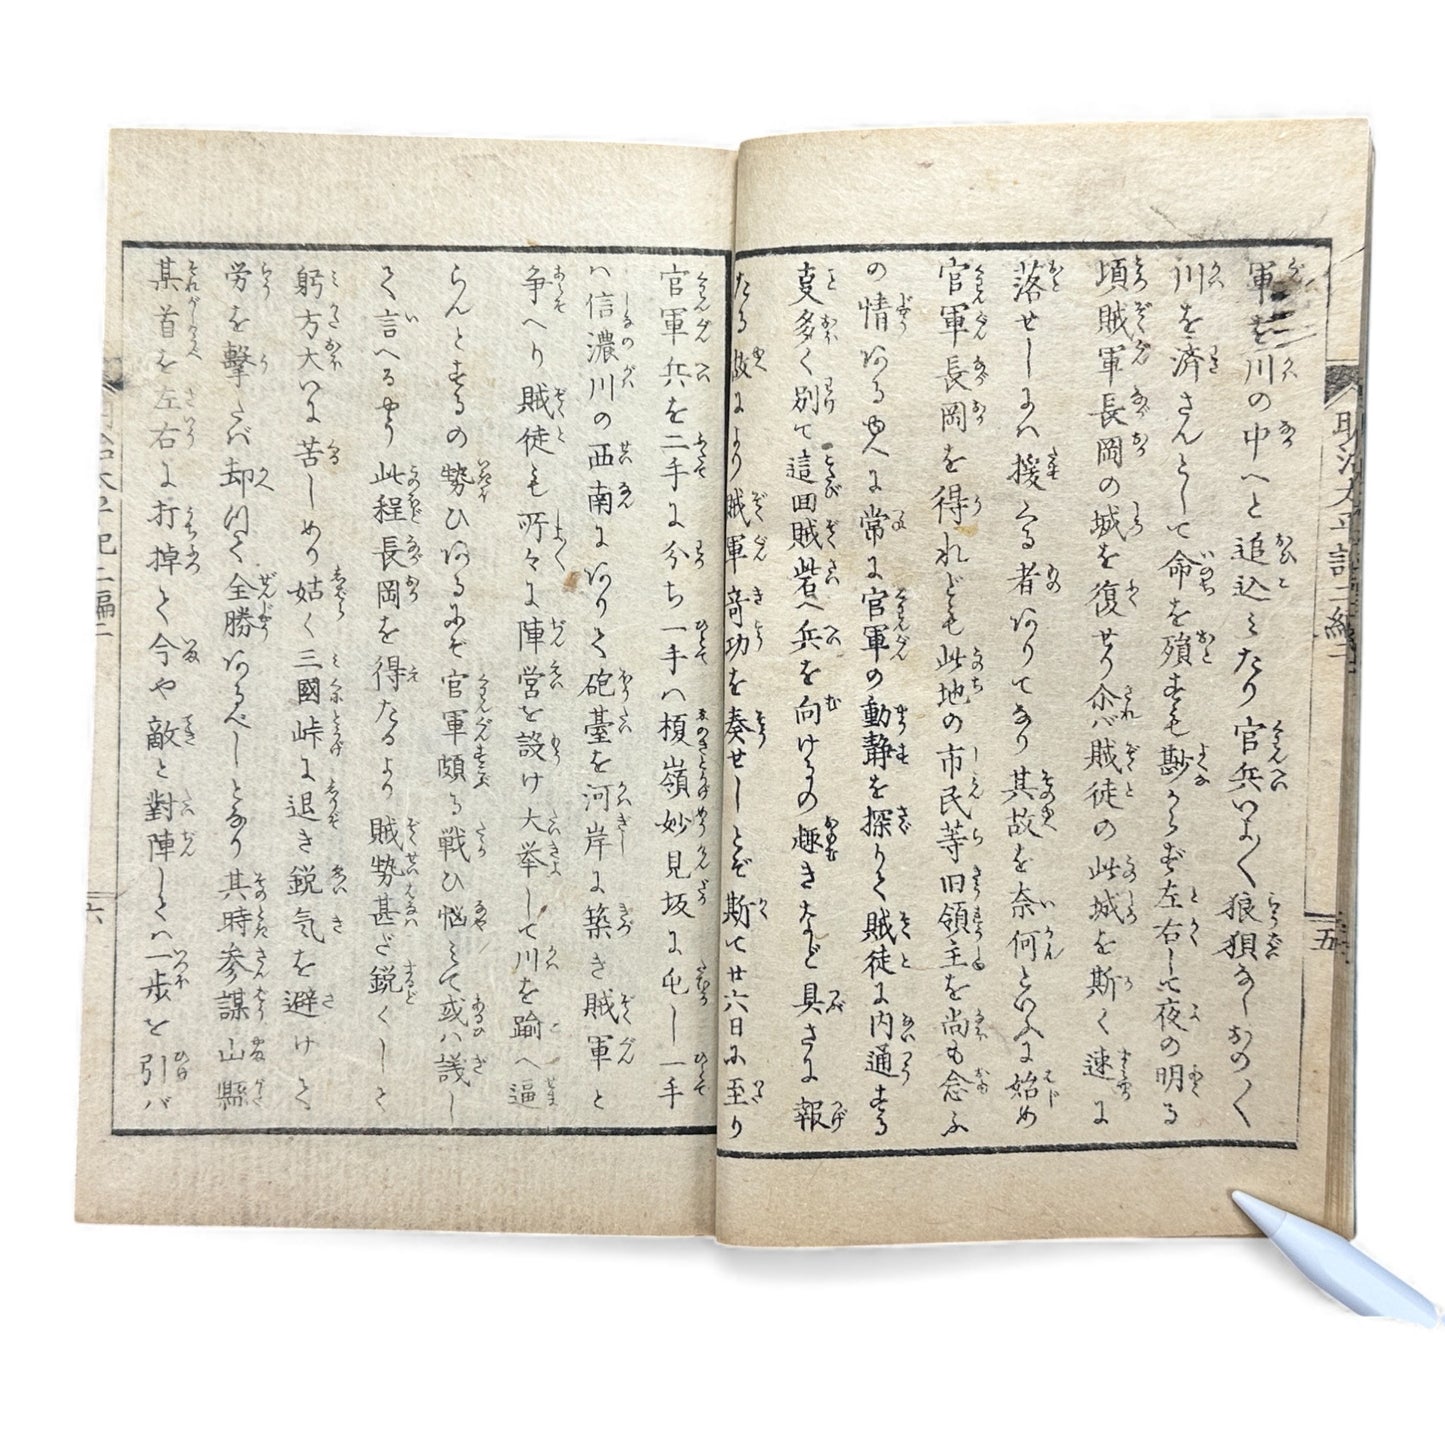 軍を川の中へと追込みたり官兵いよ〱狼狽なしおの〱
川を済さんとして命を殞すも尠からず左右して夜の明る
頃賊軍長岡の城を復せり尒バ賊徒の此城を斯く速に
落せしにハ援くる者ありてなり其故を奈何といふに始め
官軍長岡を得れども此地の市民等旧領主を尚も念ふ
の情ある由へに常に官軍の動静を探りて賊徒に内通する
叓多く別て這回賊砦へ兵を向けるの趣きなど具さに報
たる故により賊軍竒功を奏せしとぞ斯て廿六日に至り
官軍兵を二手に分ち一手ハ榎嶺妙見坂に屯し一手
ハ信濃川の西南にありて砲臺を河岸に築き賊軍と
争へり賊徒も所々に陣営を設け大挙して川を踰へ逼
らんとするの勢ひあるにぞ官軍頗る戦ひ悩みて或ハ議し
て言へるやう此程長岡を得たるより賊勢甚だ鋭くして
躬方大いに苦しめり姑く三國峠に退き鋭気を避けて
労を擊たバ却つて全勝あるべしとなり其時参謀山縣
某首を左右に打掉て今や敵と對陣して一歩を引バ
明治太平記二編二
五
明治太平記二編二
六